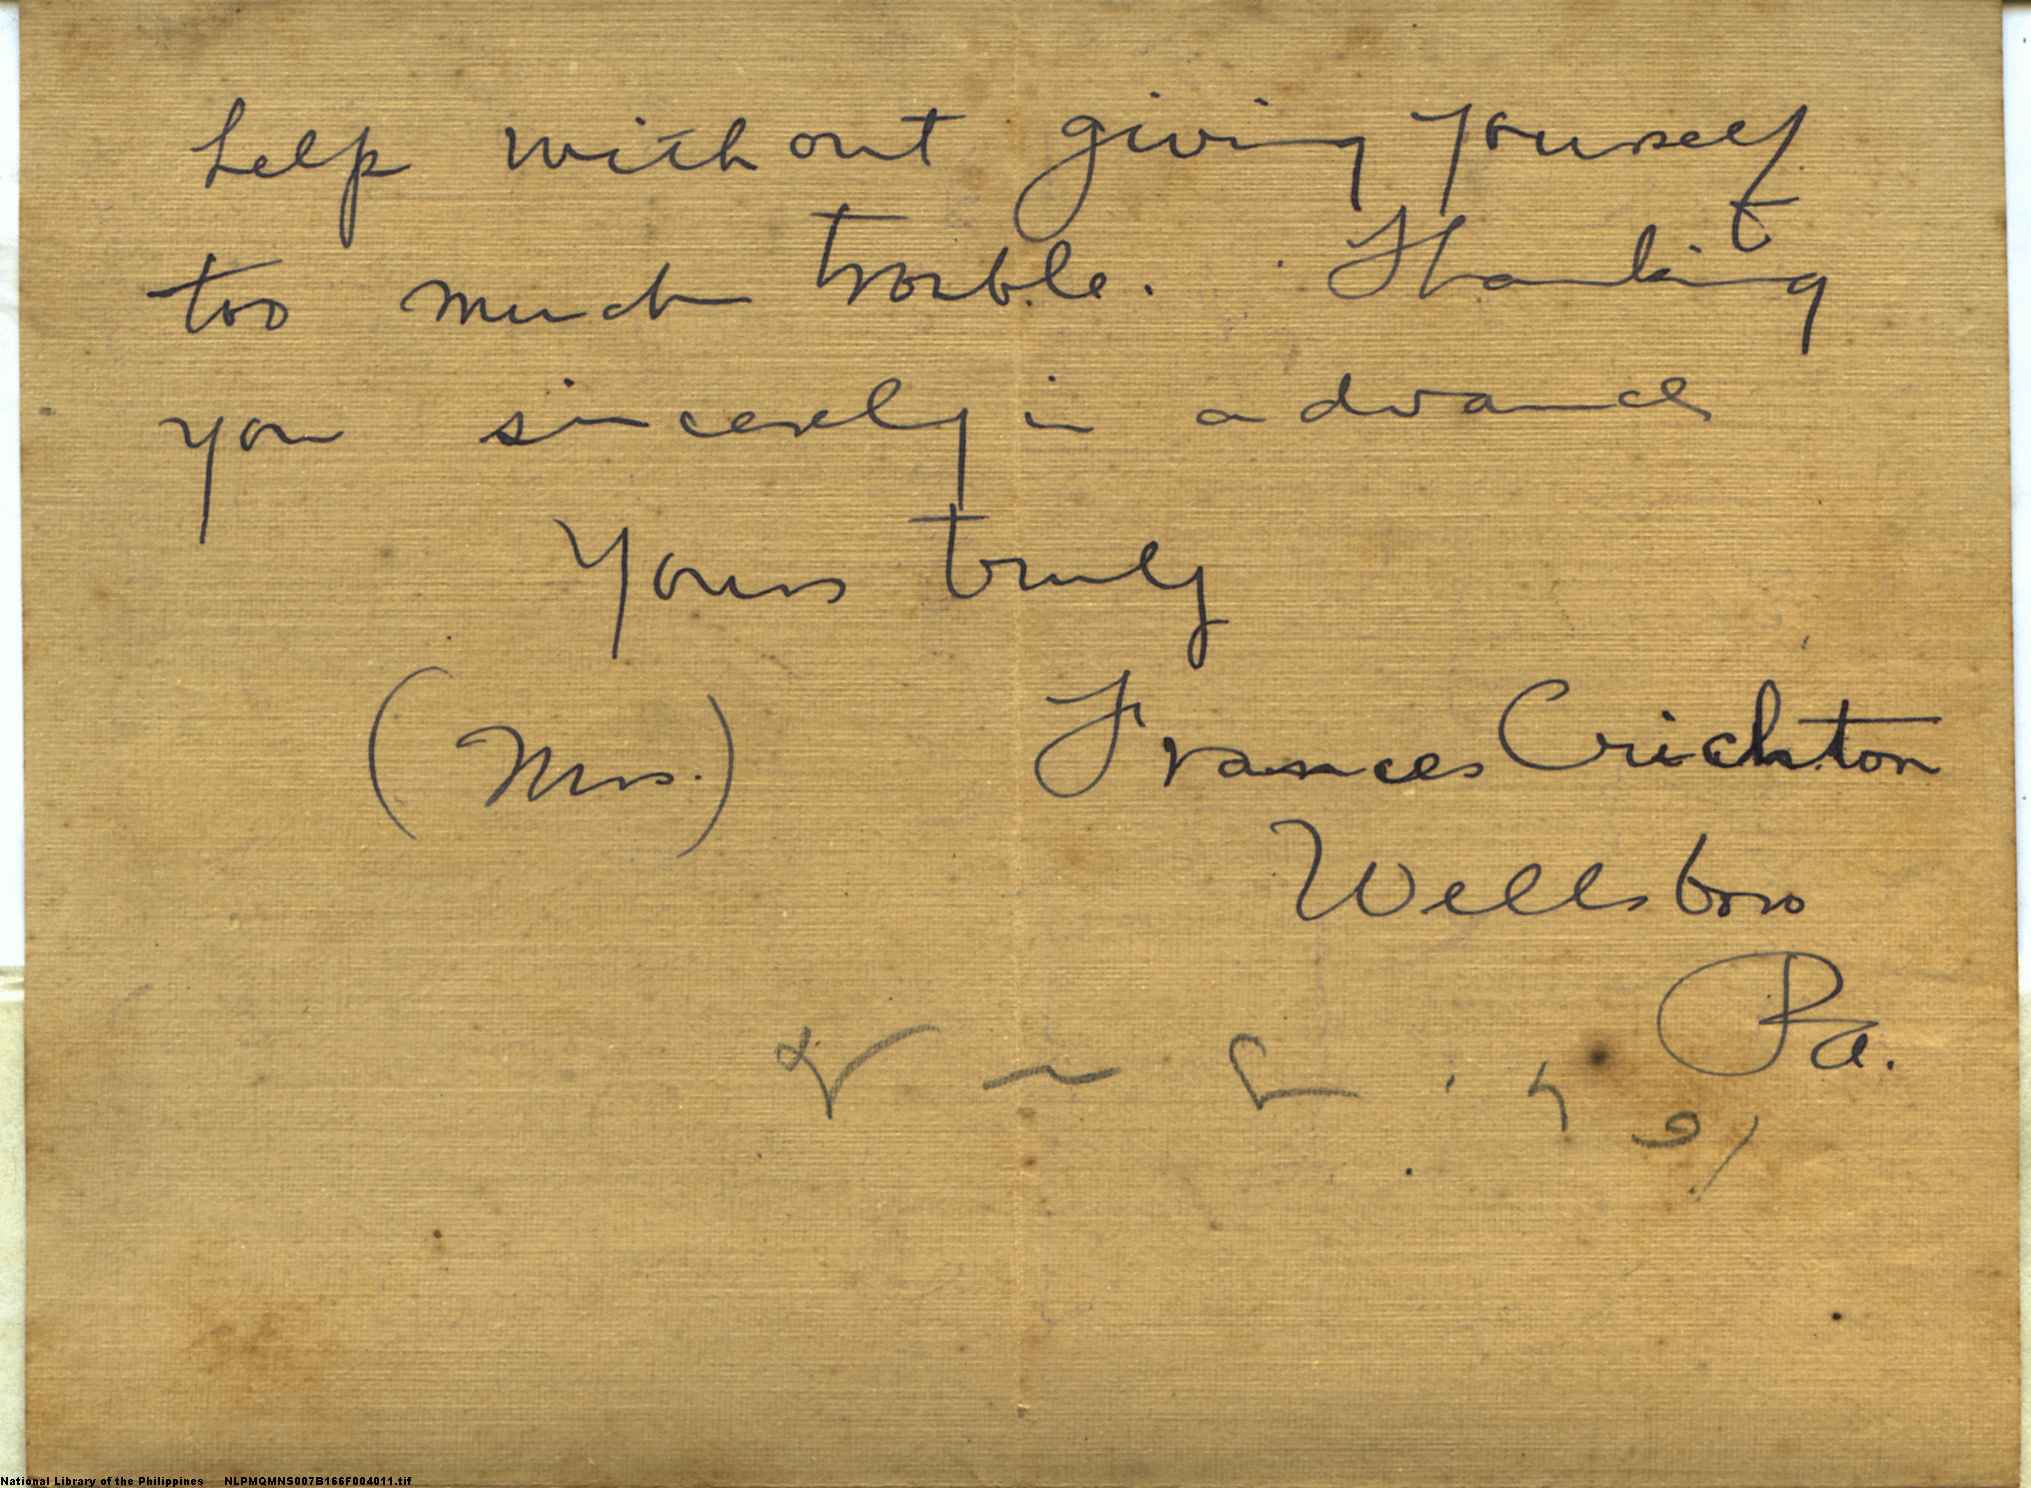 help without giving yourself
too much trouble. Thanking
you sincerely in advance
Yours truly
(Mrs.) Frances Crichton
Wellsboro
Pa.
National Library of the Philippines NLPMQMNS007B166F004011.tif